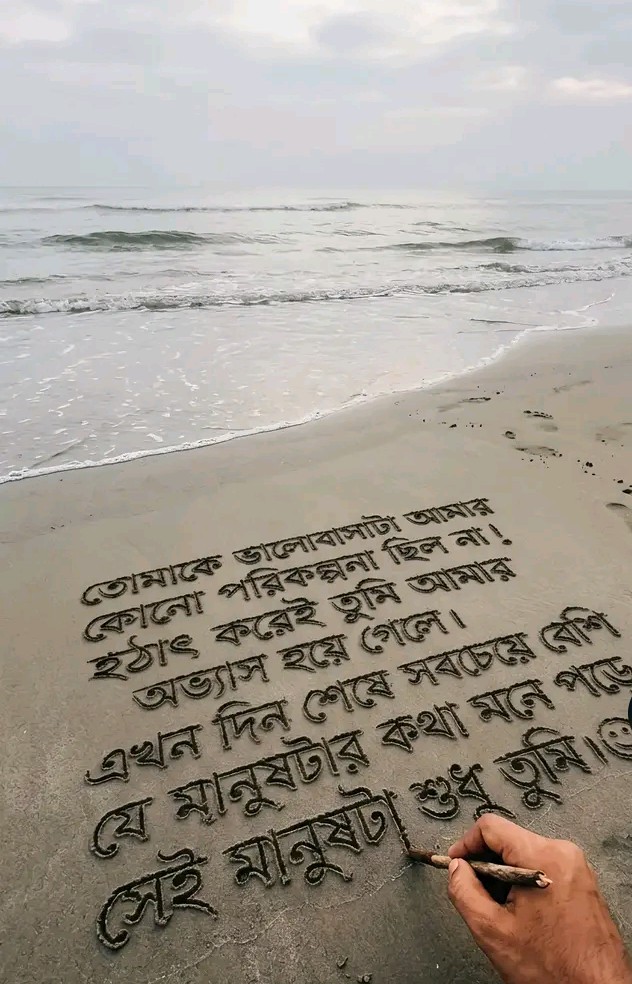 তোমাকে ভালোবাসাটা আমার
কোনো পরিকল্পনা ছিল না!.
হঠাৎ করেই তুমি আমার
অভ্যাস হয়ে গেলে।
এখন দিন শেষে সবচেয়ে বেশি
যে মানুষটার কথা মনে পড়ে
সেই মানুষটা শুধু তুমি।